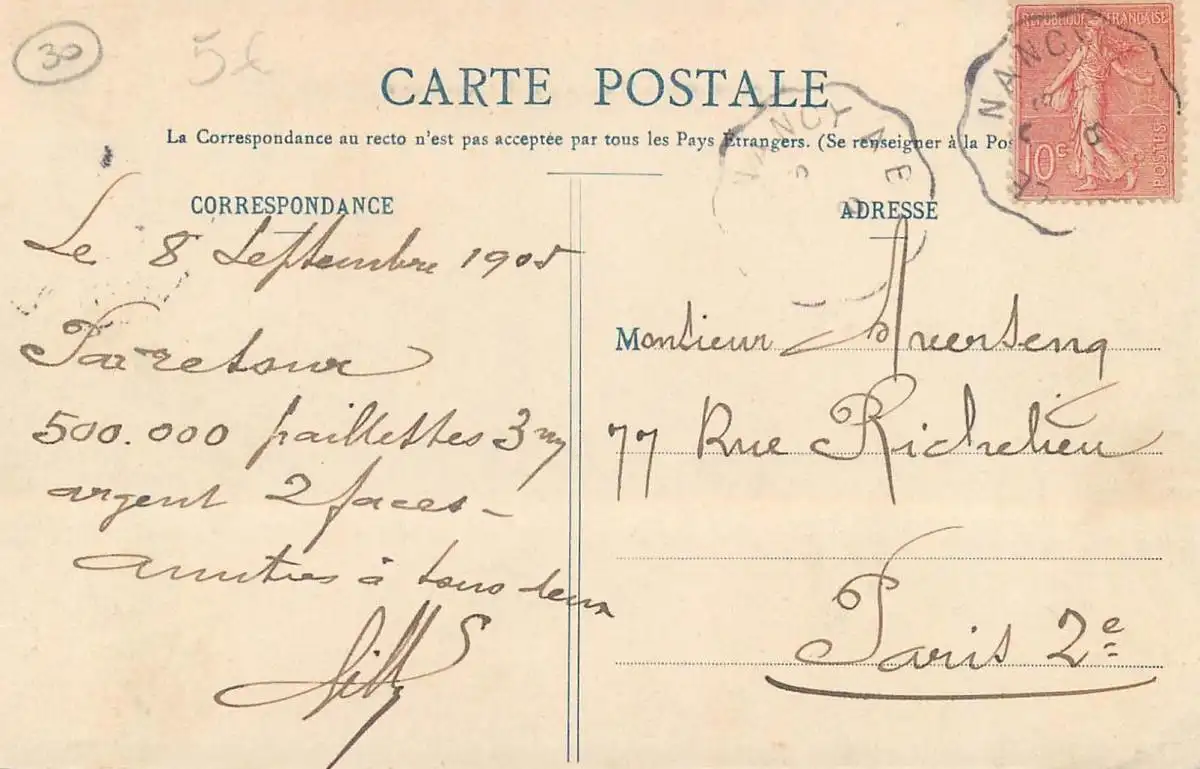 30
5€
CARTE POSTALE
La Correspondance au recto n'est pas acceptée par tous les Pays Étrangers. (Se renseigner à la Pos
RÉPUBLIQUE FRANÇAISE
10c
POSTES
NANCY
NANCY A
CORRESPONDANCE
Le 8 Septembre 1905
Par retour
500.000 paillettes 3 m/m
argent 2 faces -
amitiés à tous deux
ADRESSE
Monsieur
77 Rue Richelieu
Paris 2e